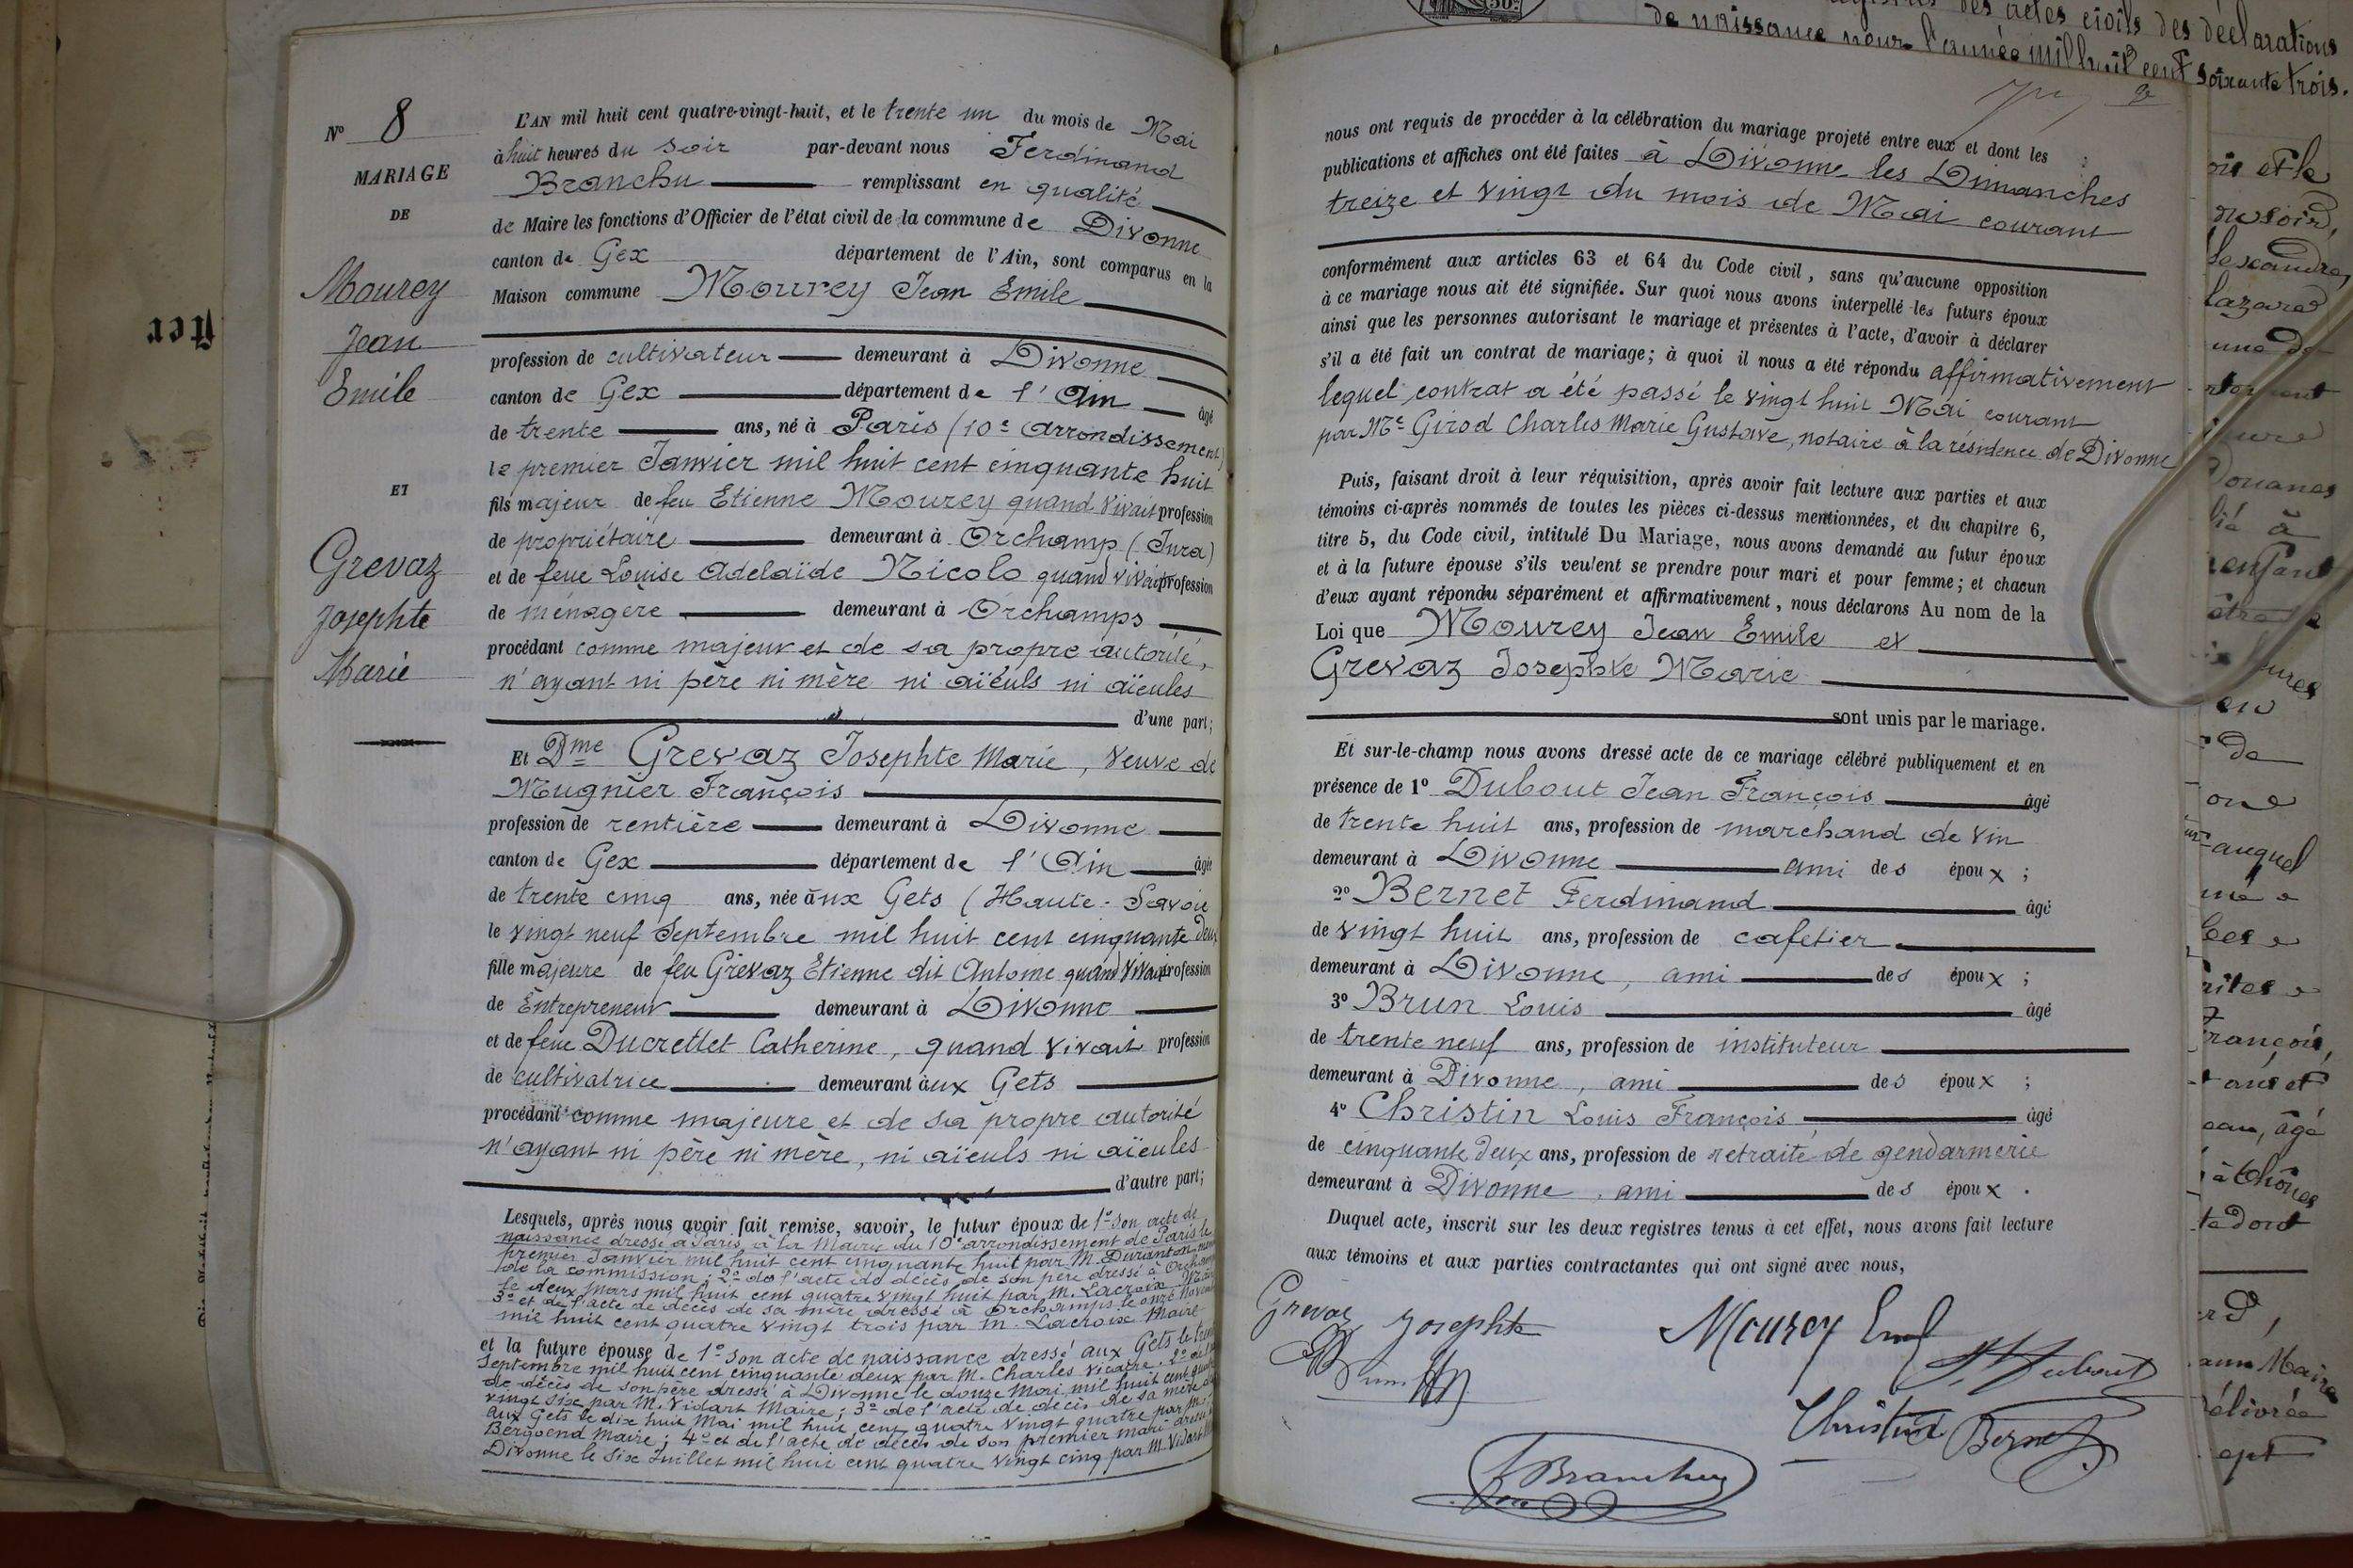 Nº 8
MARIAGE
DE
Mourey
Jean
Emile
ET
Grevaz
Josephte
Marie
L'AN mil huit cent quatre-vingt-huit, et le trente un du mois de Mai
à huit heures du soir par-devant nous Ferdinand
Branchu remplissant en qualité
de Maire les fonctions d'Officier de l'état civil de la commune de Divonne
canton de Gex département de l'Ain, sont comparus en la
Maison commune Mourey Jean Emile
profession de cultivateur demeurant à Divonne
canton de Gex département de l'Ain âgé
de trente ans, né à Paris (10e arrondissement)
le premier Janvier mil huit cent cinquante huit
fils majeur de feu Etienne Mourey quand vivait profession
de propriétaire demeurant à Orchamp (Jura)
et de feue Louise Adelaïde Nicolo quand vivait profession
de ménagère demeurant à Orchamps
procédant comme majeur et de sa propre autorité,
n'ayant ni père ni mère ni aïeuls ni aïeules
d'une part;
Et Dme Grevaz Josephte Marie, veuve de
Mugnier François
profession de rentière demeurant à Divonne
canton de Gex département de l'Ain âgée
de trente cinq ans, née aux Gets (Haute-Savoie
le vingt neuf Septembre mil huit cent cinquante deux
fille majeure de feu Grévaz Etienne dit Antoine quand vivait profession
de Entrepreneur demeurant à Divonne
et de feue Ducrettet Catherine, quand vivait profession
de cultivatrice demeurant aux Gets
procédant comme majeure et de sa propre autorité
n'ayant ni père ni mère, ni aïeuls ni aïeules
d'autre part;
Lesquels, après nous avoir fait remise, savoir, le futur époux de 1º son acte de
naissance dressé à Paris, à la Mairie du 10e arrondissement de Paris le
premier Janvier mil huit cent cinquante huit par M. Duranton
de la commission; 2º de l'acte de décès de son père dressé à
le deux Mars mil huit cent quatre vingt huit par M. Lacroix Maire
3º et de l'acte de décès de sa mère dressé à Orchamps le onze
mil huit cent quatre vingt trois par M. Lacroix Maire
et la future épouse de 1º son acte de naissance dressé aux Gets le
Septembre mil huit cent cinquante deux par M. Charles vicaire. 2º
de décès de son père dressé à Divonne le douze Mai mil huit cent
vingt six par M. Vidart Maire; 3º de l'acte de décès de sa mère
aux Gets le dix huit Mai mil huit cent quatre vingt quatre par M.
Bergoend Maire; 4º et de l'acte de décès de son premier mari dressé
Divonne le six Juillet mil huit cent quatre vingt cinq par M. Vidart
nous ont requis de procéder à la célébration du mariage projeté entre eux et dont les
publications et affiches ont été faites à Divonne les Dimanches
treize et vingt du mois de Mai courant
conformément aux articles 63 et 64 du Code civil, sans qu'aucune opposition
à ce mariage nous ait été signifiée. Sur quoi nous avons interpellé les futurs époux
ainsi que les personnes autorisant le mariage et présentes à l'acte, d'avoir à déclarer
s'il a été fait un contrat de mariage; à quoi il nous a été répondu affirmativement
lequel contrat a été passé le vingt huit Mai courant
par Me Girod Charles Marie Gustave, notaire à la résidence de Divonne
Puis, faisant droit à leur réquisition, après avoir fait lecture aux parties et aux
témoins ci-après nommés de toutes les pièces ci-dessus mentionnées, et du chapitre 6,
titre 5, du Code civil, intitulé Du Mariage, nous avons demandé au futur époux
et à la future épouse s'ils veulent se prendre pour mari et pour femme; et chacun
d'eux ayant répondu séparément et affirmativement, nous déclarons Au nom de la
Loi que Mourey Jean Emile et
Grevaz Josephte Marie
sont unis par le mariage.
Et sur-le-champ nous avons dressé acte de ce mariage célébré publiquement et en
présence de 1º Dubout Jean François âgé
de trente huit ans, profession de marchand de vin
demeurant à Divonne ami des époux;
2º Bernet Ferdinand âgé
de vingt huit ans, profession de cafetier
demeurant à Divonne, ami des époux;
3º Brun Louis âgé
de trente neuf ans, profession de instituteur
demeurant à Divonne, ami des époux;
4º Christin Louis François âgé
de cinquante deux ans, profession de retraité de gendarmerie
demeurant à Divonne, ami des époux.
Duquel acte, inscrit sur les deux registres tenus à cet effet, nous avons fait lecture
aux témoins et aux parties contractantes qui ont signé avec nous,
Grevaz Josephte
Mourey Emil
Dubout
Brun
Christin
Bernet
Branchu
des actes civils des déclarations
de naissance pour l'année mil huit cent soixante trois.